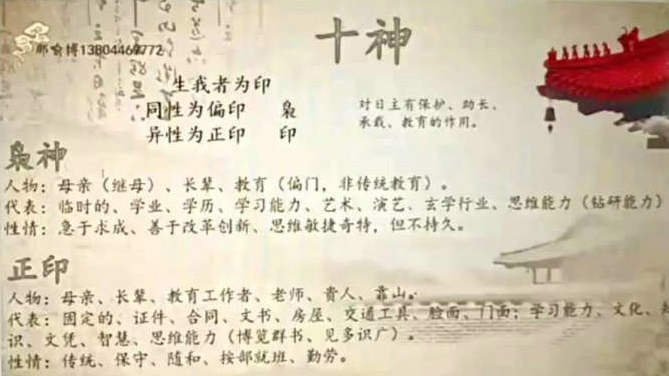 郎喻博13804469772
十神
生我者为印
同性为偏印 枭
异性为正印 印
对日主有保护、助长、
承载、教育的作用。
枭神
人物：母亲（继母）、长辈、教育（偏门，非传统教育）。
代表：临时的、学业、学历、学习能力、艺术、演艺、玄学行业、思维能力（钻研能力）
性情：急于求成、善于改革创新、思维敏捷奇特，但不持久。
正印
人物：母亲、长辈、教育工作者、老师、贵人、靠山。
代表：固定的、证件、合同、文书、房屋、交通工具、脸面、门面；学习能力、文化、知
识、文凭、智慧、思维能力（博览群书、见多识广）。
性情：传统、保守、随和、按部就班、勤劳。